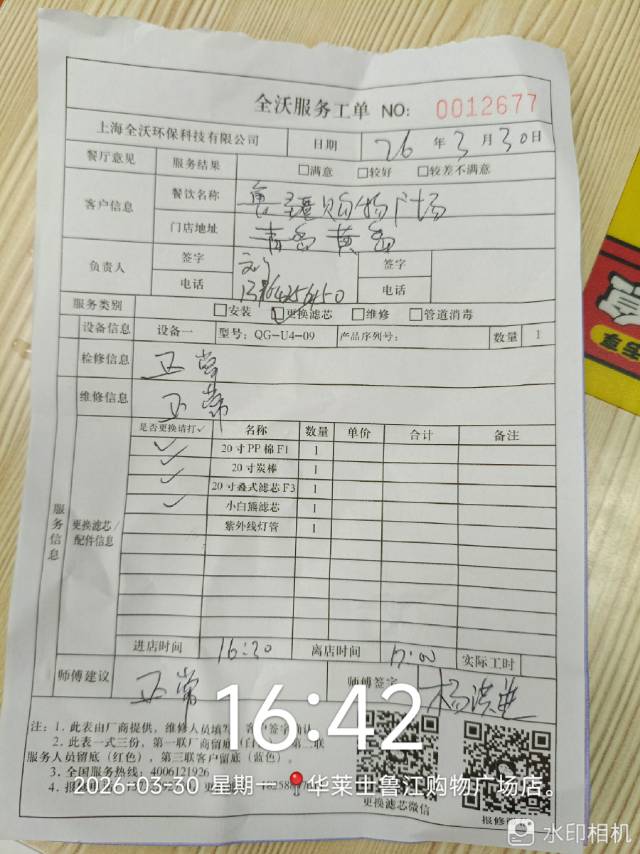 全沃服务工单 NO: 0012677
上海全沃环保科技有限公司 日期 26 年 3 月 30 日
餐厅意见 服务结果 □满意 □较好 □较差不满意
客户信息 餐饮名称 购物广场
门店地址 青岛黄岛
负责人 签字 签字
电话 电话
服务类别 □安装 □更换滤芯 □维修 □管道消毒
设备信息 设备一 型号: QG-U4-09 产品序列号: 数量 1
检修信息 正常
维修信息 正常
服务信息
更换滤芯/配件信息
是否更换请打✓ 名称 数量 单价 合计 备注
✓ 20寸PP棉F1 1
✓ 20寸炭棒 1
✓ 20寸叠式滤芯F3 1
✓ 小白熊滤芯 1
紫外线灯管 1
进店时间 16:30 离店时间 17:00 实际工时
师傅建议 正常 师傅签字
16:42
注: 1. 此表由厂商提供, 维修人员填
2. 此表一式三份, 第一联厂商留底
服务人员留底(红色), 第三联客户留底(蓝色)。
3. 全国服务热线: 4006121926
2026-03-30 星期一 华莱士鲁江购物广场店。
更换滤芯微信
水印相机